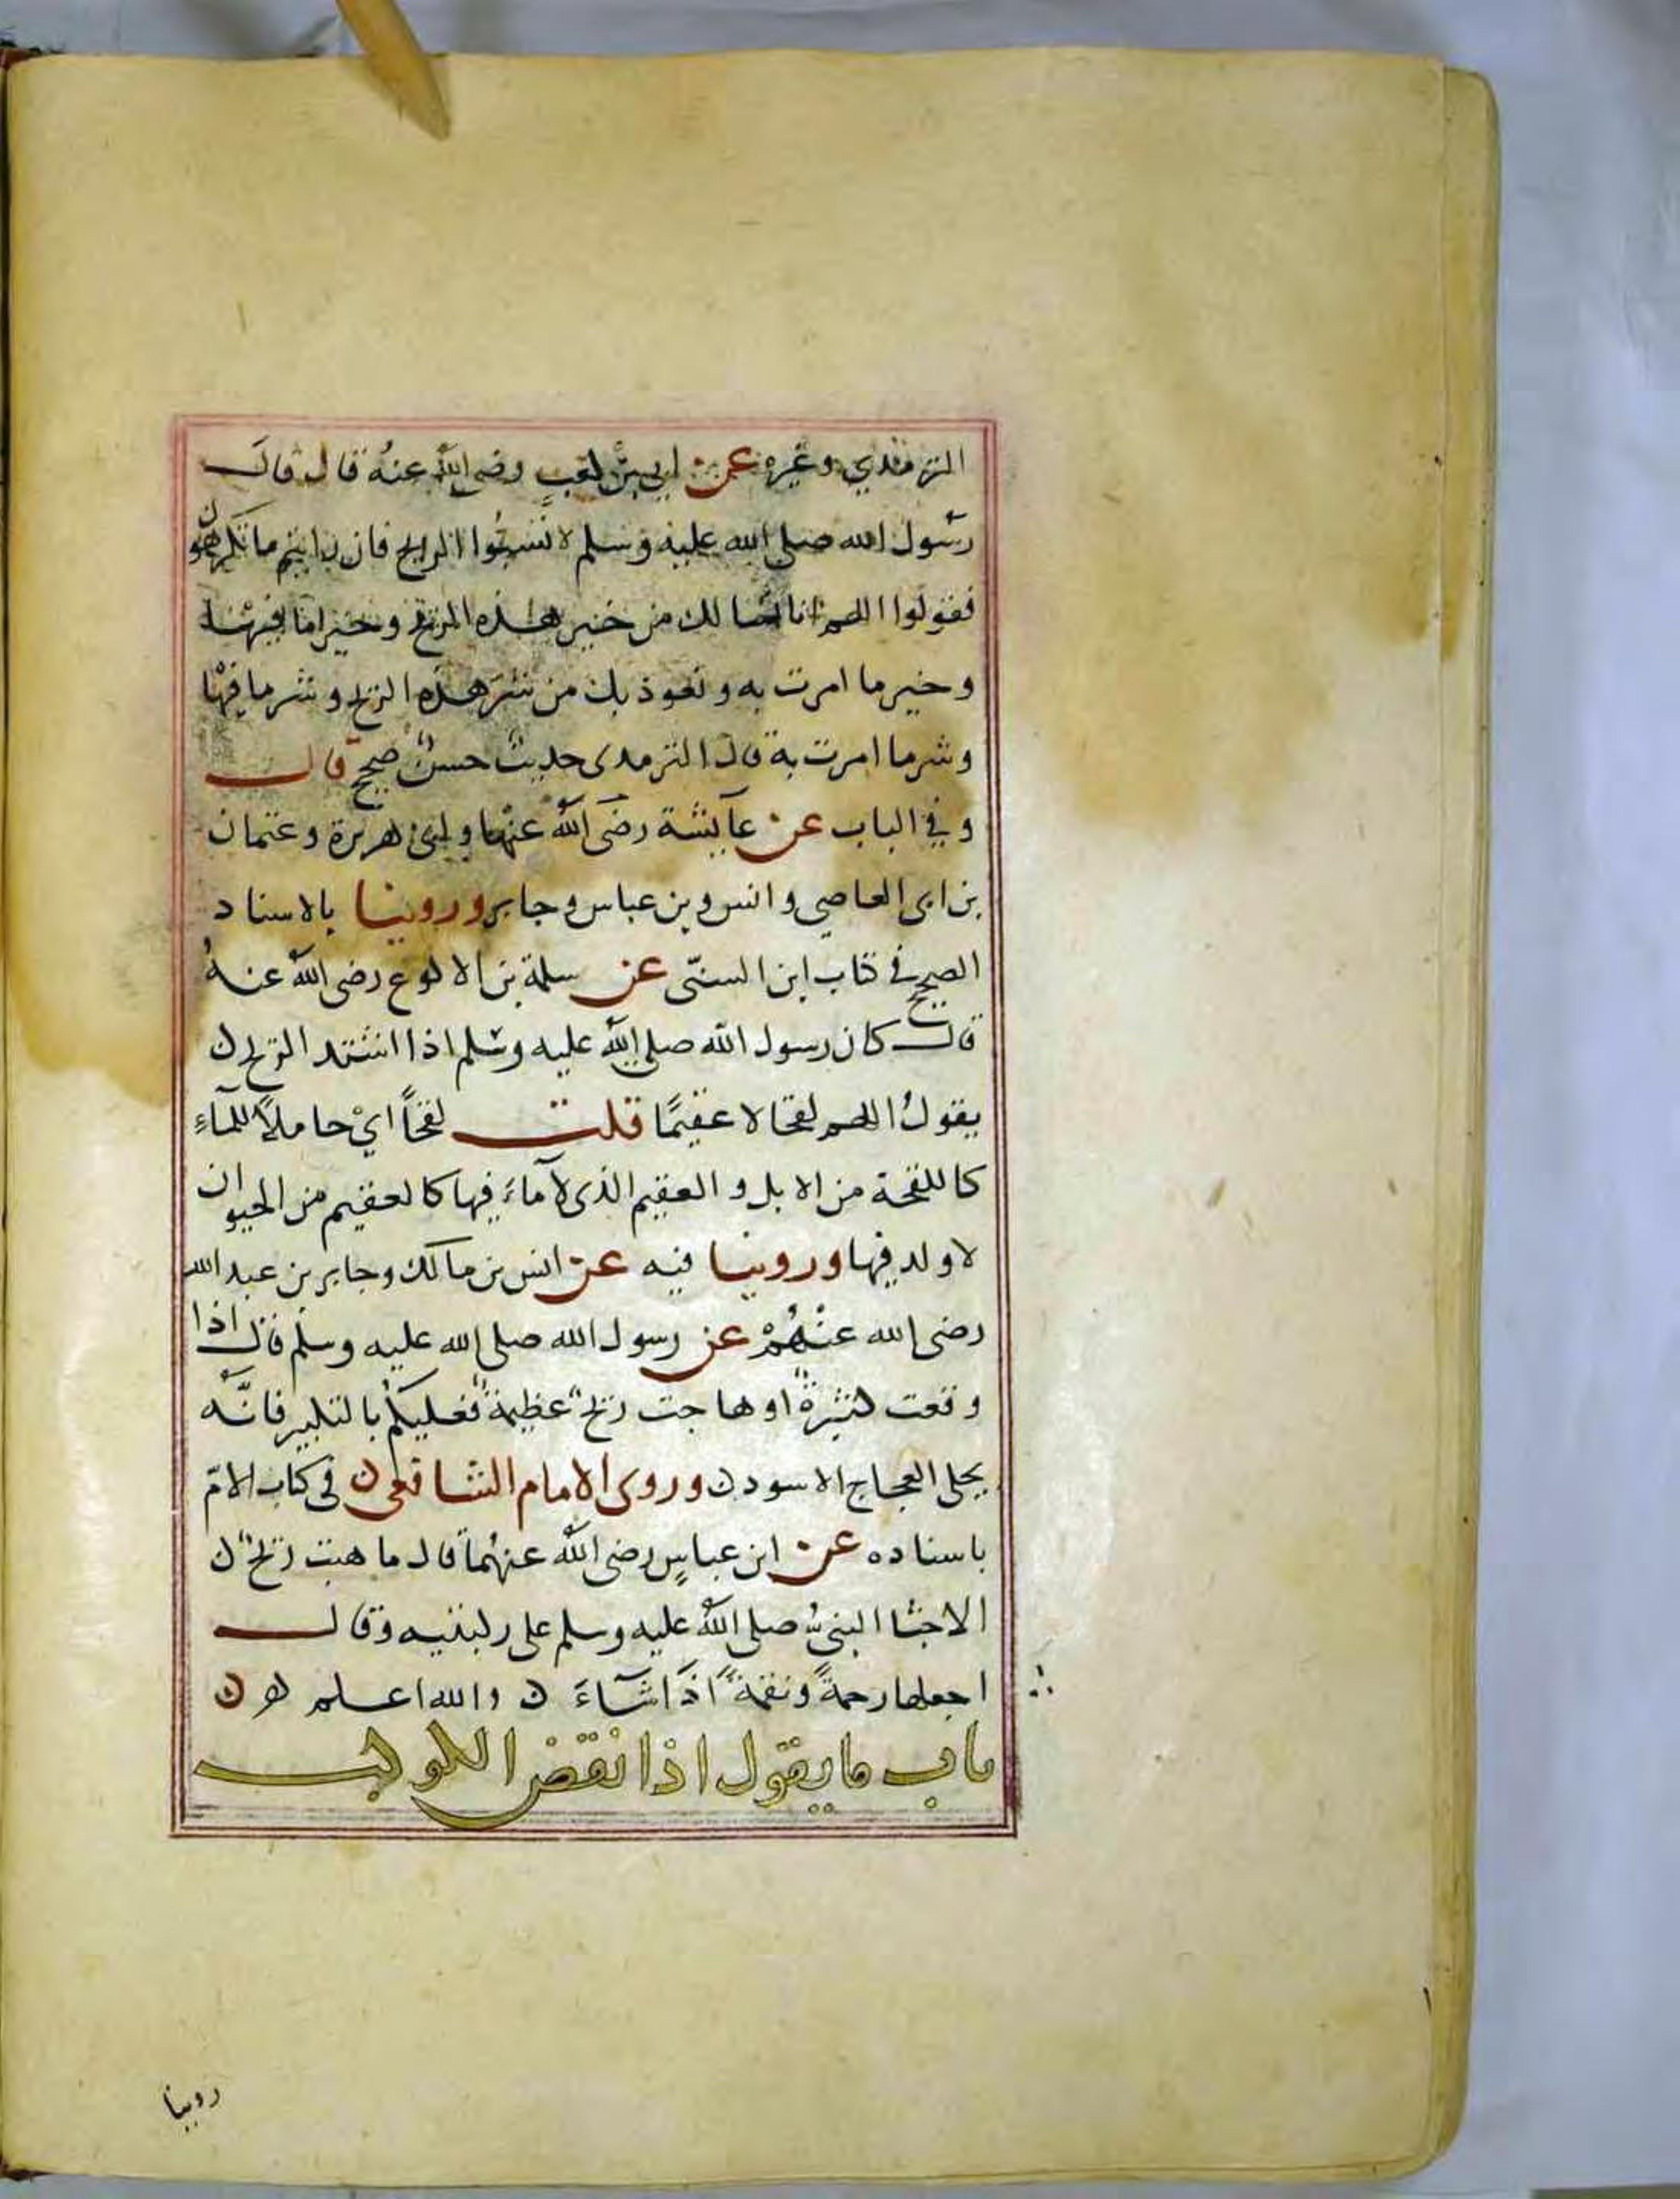 الترمذي وغيره عن ابي بن كعب رضي الله عنه قال قال
رسول الله صلى الله عليه وسلم لا تسبوا الريح فان رايتم ما تكرهون
فقولوا اللهم انا نسالك من خير هذه الريح وخير ما فيها
وخير ما امرت به ونعوذ بك من شر هذه الريح وشر ما فيها
وشر ما امرت به قال الترمدى حديث حسن صحيح قال
وفي الباب عن عايشة رضى الله عنها وابى هريرة وعثمان
بن ابى العاصي وانس وبن عباس وجابر وروينا بالاسناد
الصحيح في كتاب ابن السنّى عن سلمة بن الاكوع رضى الله عنهُ
قال كان رسول الله صلى الله عليه وسلم اذا اشتد الريح ن
يقولُ اللهم لقحا لا عقيمًا قلت لقحاً ايْ حاملاً للمآءِ
كاللقحة من الابل والعقيم الذى لا مآءَ فيها كالعقيم من الحيوان
لا ولد فيها وروينا فيه عن انس بن مالك وجابر بن عبد الله
رضى الله عنْهُمْ عن رسول الله صلى الله عليه وسلم قال اذا
وقعت كثيرةٌ او هاجت ريحٌ عظيمةٌ فعليكُم بالتكبير فانَّه
يجلى العجاج الاسود ن وروى الامام الشافعى ن فى كتاب الامّ
باسناده عن ابن عباسٍ رضى الله عنهُما قال ما هبت ريحٌ ن
الا جثا النبىُّ صلى الله عليه وسلم على ركبتيه وقال
اجعلها رحمةً ونقمةً اذَا شآءَ ن والله اعلم ن
باب ما يقول اذا نقض الكوكب
روينا